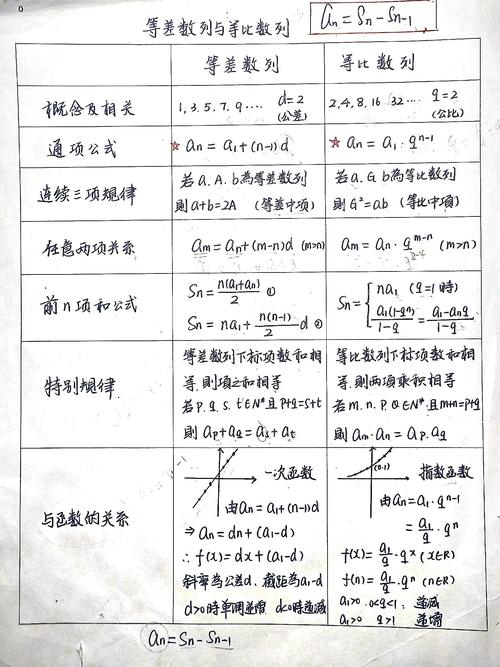 等差数列与等比数列
an = Sn - Sn-1
等差数列
等比数列
概念及相关
1, 3, 5, 7, 9 ···· d=2 (公差)
2, 4, 8, 16 32 ···· q=2 (公比)
通项公式
☆ an = a1 + (n-1) d
☆ an = a1 · q^n-1
连续三项规律
若 a. A. b 為等差数列
則 a+b=2A (等差中项)
若 a. G b 為等比数列
則 G²=ab (等比中項)
任意两项关系
am = an + (m-n)d (m>n)
am = an · q^m-n (m>n)
前n项和公式
Sn = n(a1+an)/2 ①
Sn = na1 + n(n-1)/2 d ②
Sn = { na1 (q=1時)
a1(1-q^n)/1-q = a1-anq/1-q
特别规律
等差数列下标项数和相
等.則项之和相等
若 p. q. s. t ∈N* 且 p+q=s+t
則 ap+aq = as+at
等比数列下标项数和相
等.則两項乘积相等
若m. n. P. Q ∈N*.且m+n=p+q
則 am·an = ap.aq
与函数的关系
一次函数
由an = a1+(n-1)d
⇒ an = dn + (a1-d)
∴ f(x) = dx + (a1-d)
斜率為公差d. 截距為a1-d
d>0時单調遞增 d<0時遞減
(0.1)
指数函数
由an=a1·q^n-1
= a1/q · q^n
f(x) = a1/q · q^x (x∈R)
f(n) = a1/q · q^n (n∈R)
a1>0 . 0<q<1 : 遞减
a1>0 q>1 遞增
an = Sn - Sn-1